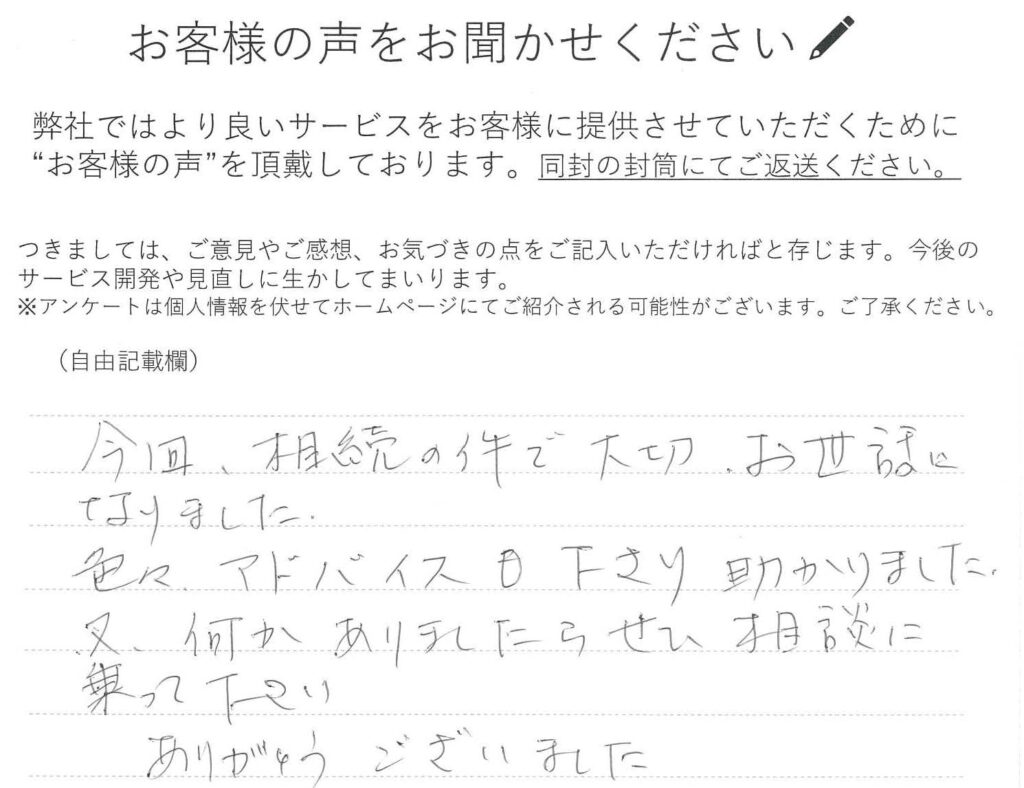 お客様の声をお聞かせください
弊社ではより良いサービスをお客様に提供させていただくために
“お客様の声”を頂戴しております。同封の封筒にてご返送ください。
つきましては、ご意見やご感想、お気づきの点をご記入いただければと存じます。今後の
サービス開発や見直しに生かしてまいります。
※アンケートは個人情報を伏せてホームページにてご紹介される可能性がございます。ご了承ください。
（自由記載欄）
今回、相続の件で大切、お世話に
なりました.
色々、アドバイスも下さり助かりました.
又、何かありましたらぜひ相談に
乗って下さい
ありがとうございました